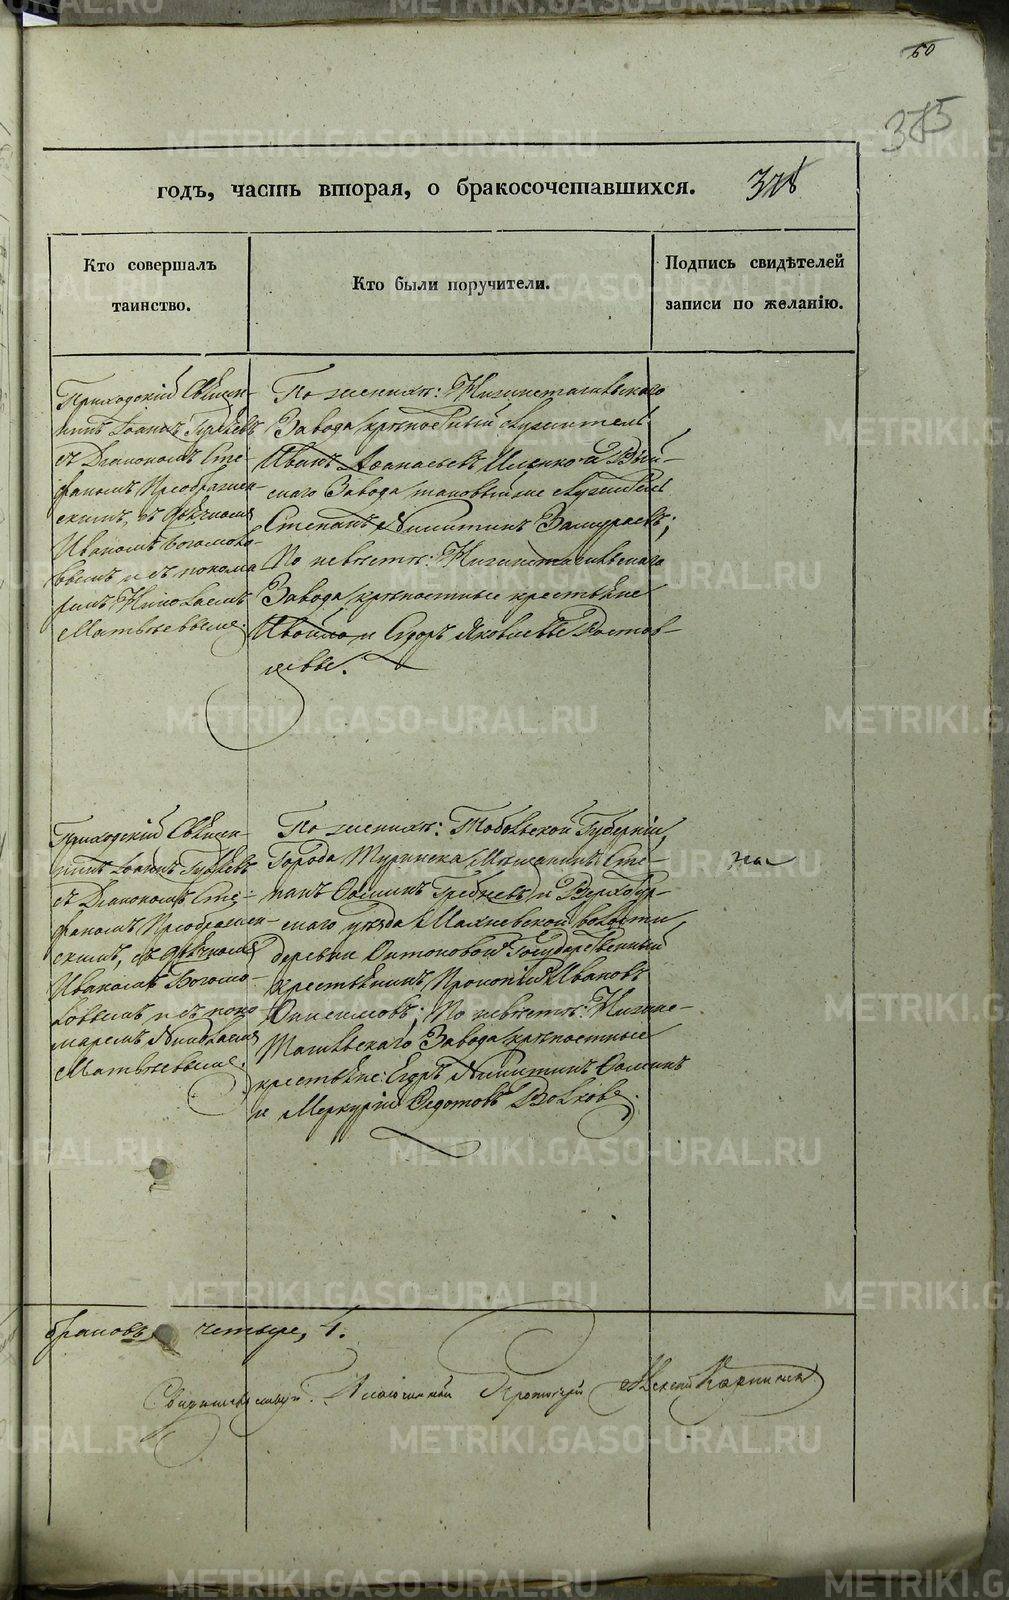 60
375
годъ, часть вторая, о бракосочетавшихся. 378
Кто совершалъ
таинство.
Кто были поручители.
Подпись свидѣтелей
записи по желанію.
Приходскій Священ-
никъ Іоаннъ
съ Діакономъ Сте-
фаномъ Преображен-
скимъ, съ Дьячкомъ
Иваномъ Богомоло-
вымъ и съ понома
ремъ Николаемъ
Матвѣевымъ.
По женихѣ: Нижнетагильскаго
Завода крѣпостный служитель
Иванъ Аѳанасьевъ и Вый-
скаго Завода таковый же служитель
Степанъ Никитинъ
По невѣстѣ: Нижнетагильскаго
Завода крѣпостные крестьяне
и Егоръ Яковлевы

Приходскій Священ-
никъ Іоаннъ
съ Діакономъ Сте-
фаномъ Преображен-
скимъ, съ Дьячкомъ
Иваномъ Богомо-
ловымъ и съ поно
маремъ Николаемъ
Матвѣевымъ.
По женихѣ: Тобольской Губерніи,
Города Туринска Мѣщанинъ Сте-
панъ Ѳоминъ Гребневъ и Верхотур-
скаго уѣзда Махневской волости
деревни Государственный
крестьянинъ Прокопій Ивановъ
Анисимовъ; По невѣстѣ: Нижне-
Тагильскаго Завода крѣпостные
крестьяне: Егоръ Никитинъ Ѳоминъ
и Меркурій Ѳедотовъ Волковъ.
браковъ четыре, 4.
Благочинный Протоіерей Алексій Карпинскій
METRIKI.GASO-URAL.RU